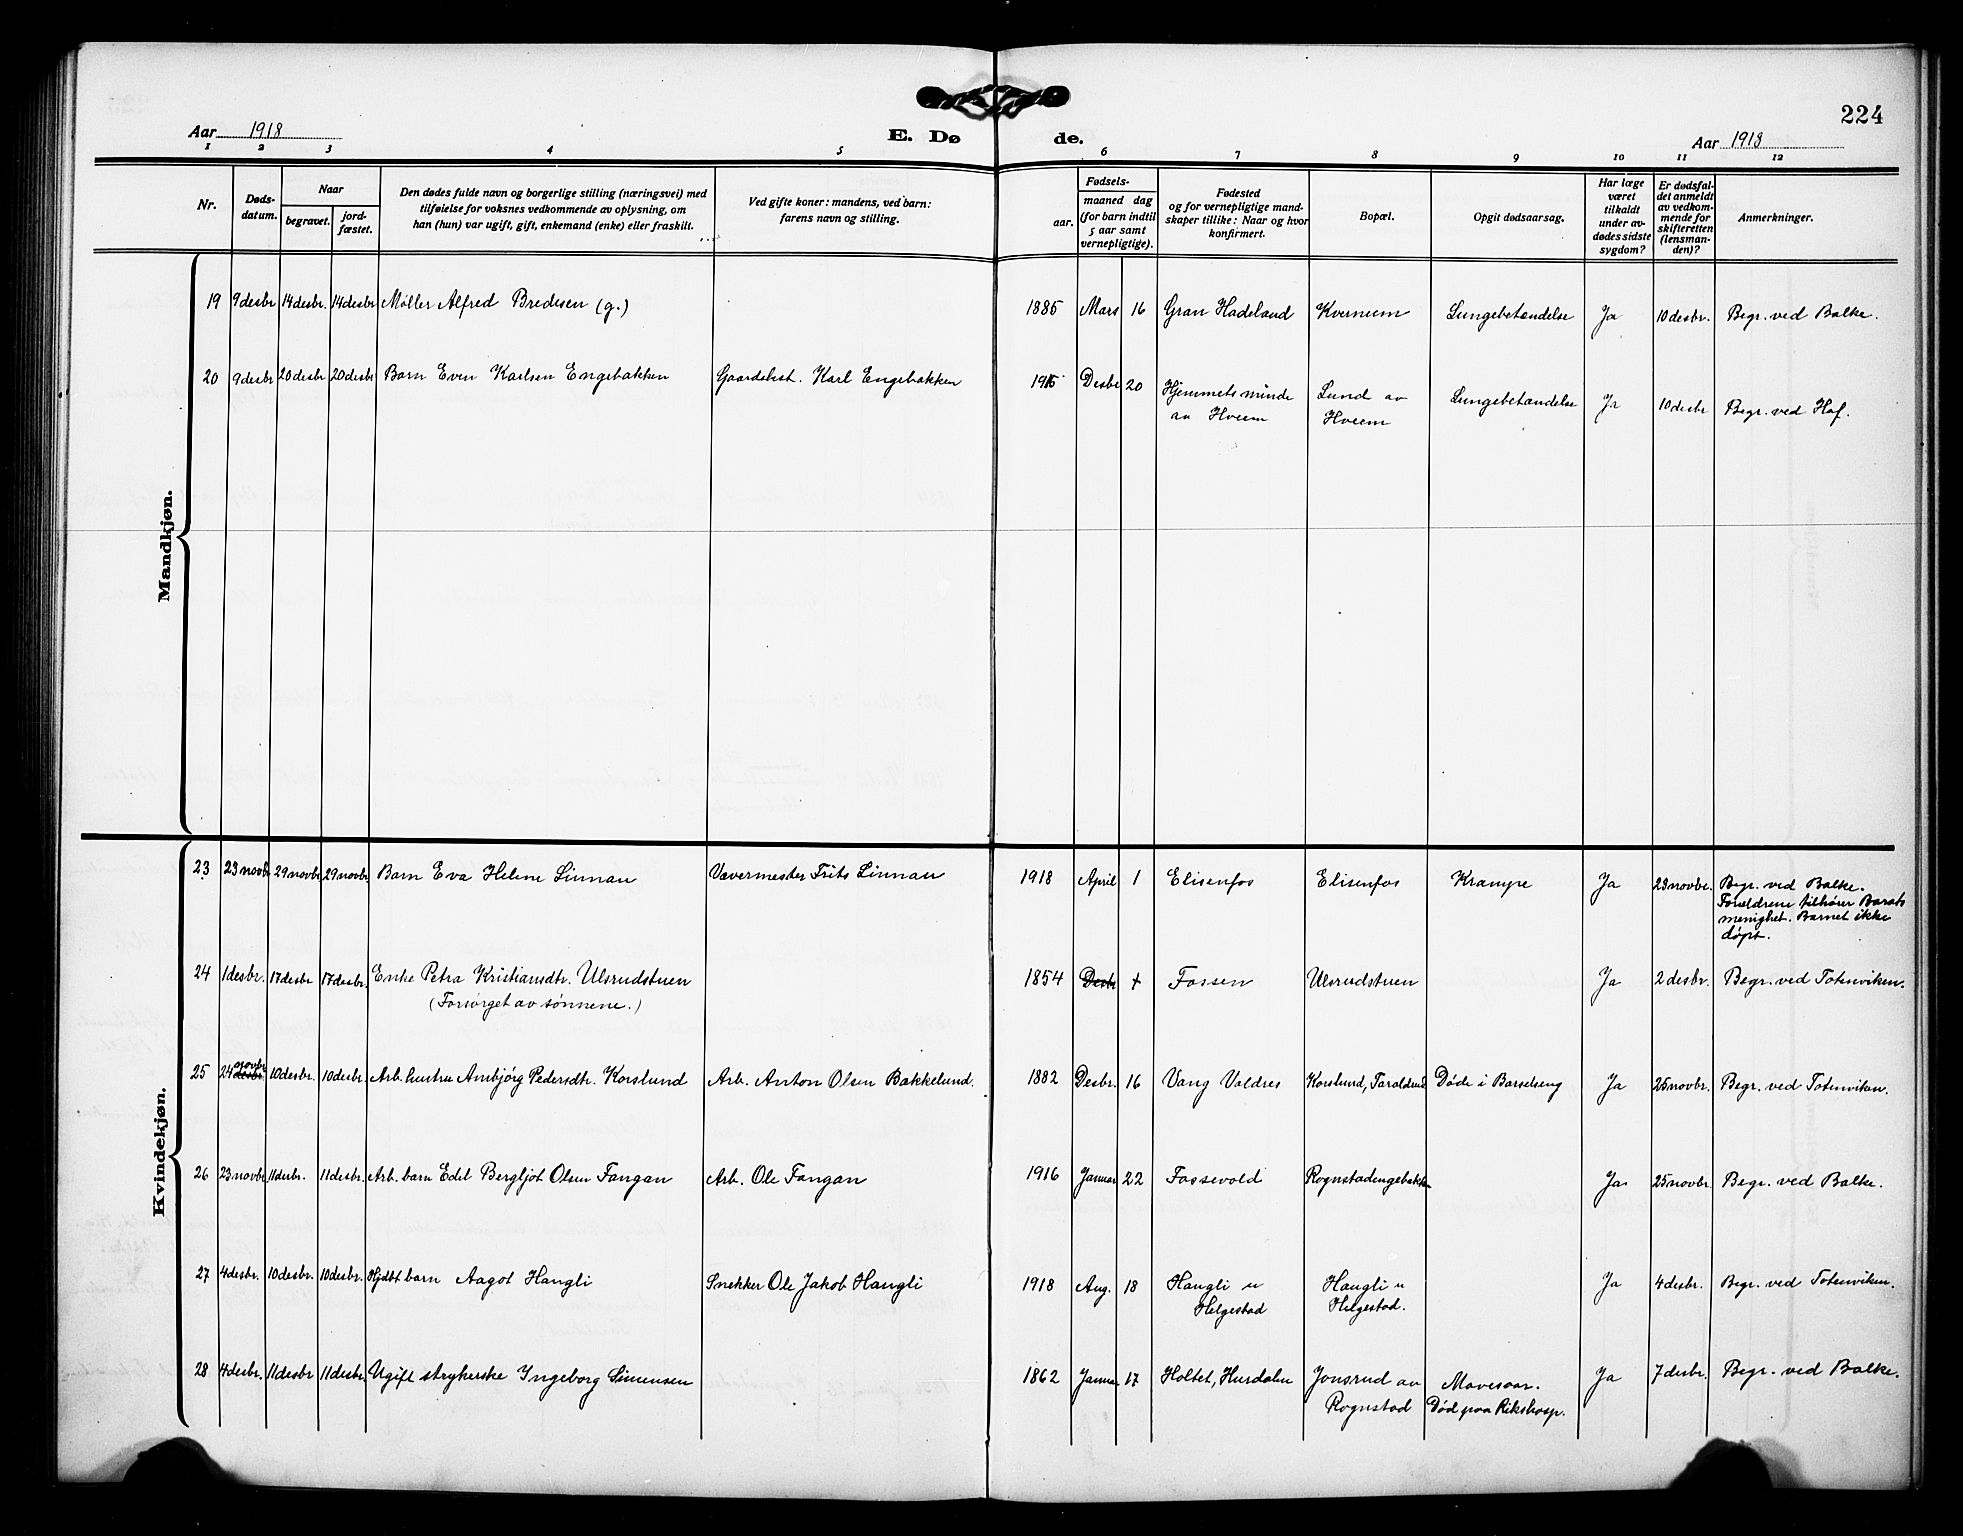 224
Aar 1918
E. Dø de.
Aar 1918
1 2 3 4 5 6 7 8 9 10 11 12
Nr.
Døds-
datum.
Naar
begravet.
jord-
fæstet.
Den dødes fulde navn og borgerlige stilling (næringsvei) med
tilføielse for voksnes vedkommende av oplysning, om
han (hun) var ugift, gift, enkemand (enke) eller fraskilt.
Ved gifte koner: mandens, ved barn:
farens navn og stilling.
Fødsels-
aar.
maaned dag
(for barn indtil
5 aar samt
vernepligtige).
Fødested
og for vernepligtige mand-
skaper tillike: Naar og hvor
konfirmert.
Bopæl.
Opgit dødsaarsag.
Har læge
været
tilkaldt
under av-
dødes sidste
sygdom?
Er dødsfal-
det anmeldt
av vedkom-
mende for
skifteretten
(lensman-
den)?
Anmerkninger.
Mandkjøn.
19 9 desbr 14 desbr. 14 desbr Møller Alfred Bredesen (g.) 1885 Mars 16 Gran Hadeland Kvernum Lungebetændelse Ja 10 desbr. Begr. ved Balke.
20 9 desbr 20 desbr 20 desbr Barn Even Karlsen Engebakken Gaardsbest. Karl Engebakken 1915 Desbr 20 Hjemmets minde
av Hveem
Lund av
Hveem
Lungebetændelse Ja 10 desbr Begr. ved Hof.
Kvindekjøn.
23 23 novbr 29 novbr 29 novbr. Barn Eva Helene Linnau Vævermester Frits Linnau 1918 April 1 Elisenfos Elisenfos Krampe Ja 23 novbr. Begr. ved Balke.
Forældrene tilhører Barats
menighet. Barnet ikke
døpt.
24 1 desbr. 17 desbr 17 desbr. Enke Petra Kristiansdtr. Ulsrudstuen
(Forsørget av sønnene.)
1854 Desbr + Fossen Ulsrudstuen Ja 2 desbr. Begr. ved Totenviken.
25 24 desbr. novbr. 10 desbr. 10 desbr. Arb. hustru Ambjørg Pedersdtr. Korslund Arb. Anton Olsen Bakkelund. 1882 Desbr. 16 Vang Valdres Korslund, Faraldrud Døde i Barselseng Ja 25 novbr. Begr. ved Totenviken.
26 23 novbr 11 desbr. 11 desbr. Arb. barn Edel Bergljot Olsen Fangan Arb. Ole Fangan 1916 Januar 22 Fossevold Rognstadengebakken Ja 25 novbr. Begr. ved Balke.
27 4 desbr. 10 desbr. 10 desbr. Hjdbt barn Aagot Haugli Snekker Ole Jakob Haugli 1918 Aug. 18 Haugli u
Helgestad
Haugli u
Helgestad.
Ja 4 desbr. Begr. ved Totenviken.
28 4 desbr. 11 desbr 11 desbr Ugift strykerske Ingeborg Simensen 1862 Januar 17 Holtet, Hurdalen Jonsrud av
Rognstad
Mavesaar.
Død paa Rikshosp.
Ja 7 desbr. Begr. ved Balke.